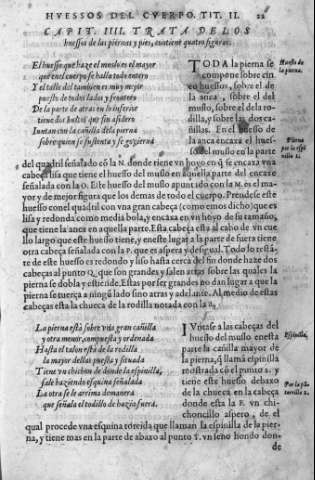 HVESSOS DEL CVERPO. TIT. II. 22
CAPIT. IIII. TRATA DE LOS
huessos de las piernas y pies, contiene quatro figuras.
El huesso que haze el muslo es el mayor
que en el cuerpo se halla todo entero
Y el talle del tambien es muy mejor
puesto de todos lados y frontero
De la parte de atras en lo inferior
tiene dos bultos que son asidero
Iuntan con la cañilla de la pierna
sobre quien se sustenta y se gouierna
TODA la pierna se
compone sobre cin
co huessos, sobre el de
la anca, sobre el del
muslo, sobre el de la ro
dilla, y sobre las dos ca-
ñillas. En el huesso de
la anca encaxa el hues-
so del muslo en la parte
Huesso de
la pierna.
del quadril señalado cō la N. donde tiene vn hoyo en q̃ se encaxa vna
cabeça lisa que tiene el huesso del muslo en aquella parte del encaxe
señalada con la O. Este huesso del muslo apuntado con la N. es el ma-
yor y de mejor figura que los demas de todo el cuerpo. Prendese este
huesso con el quadril con vna gran cabeça como emos dicho que es
lisa y redonda como media bola, y encaxa en vn hoyo de su tamaño,
que tiene la anca en aquella parte. Esta cabeça esta al cabo de vn cue
llo largo que este huesso tiene, y en este lugar a la parte de fuera tiene
otra cabeça señalada con la P. que es aspera y desigual. Todo lo resta-
te de este huesso es redondo y liso hasta cerca del fin donde haze dos
cabeças al punto Q. que son grandes y salen atras sobre las quales la
pierna se dobla y estiende. Estas por ser grandes no dan lugar a que la
pierna se tuerça a ningũ lado sino atras y adelante. Al medio de estas
cabeças esta la chueca de la rodilla notada con la R.
La pierna está sobre vna gran cañilla
y otra menor, compuesta y ordenada
Hasta el talon esta de la rodilla
la mejor dellas puesta y situada
Tiene vn chichon de donde la espinilla,
sale haziendo esquina señalada
La otra se le arrima de manera
que señala el todillo de hazia fuera.
IVntase a las cabeças del
huesso del muslo en esta
parte la cañilla mayor de
la pierna, q̃ llamā espinilla
mostrada cō el punto S. y
tiene este huesso debaxo
de la chueca en la cabeça
donde esta la T. vn chi-
choncillo aspero, de el
Espinilla.
qual procede vna esquina torcida que llaman la espinilla de la pier-
na, y tiene mas en la parte de abaxo al punto V. vn seno hondo don-
de